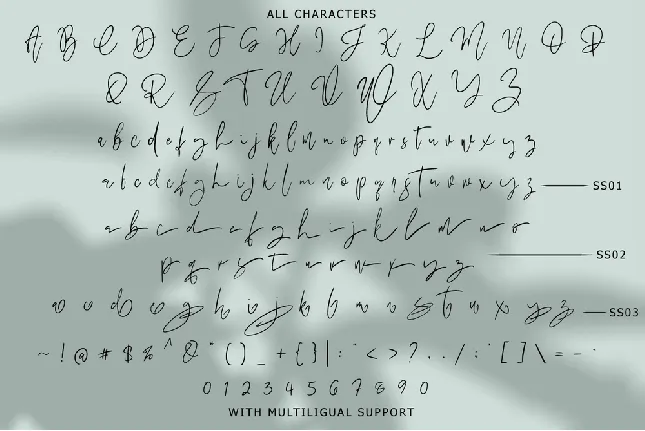 ALL CHARACTERS
A B C D E F G H I J K L M N O P
Q R S T U V W X Y Z
a b c d e f g h i j k l m n o p q r s t u v w x y z
a b c d e f g h i j k l m n o p q r s t u v w x y z SS01
a b c d e f g h i j k l m n o
p q r s t u v w x y z SS02
SS03
~ ! @ # $ % ^ & * ( ) _ + { } | : " < > ? , . / ; ' [ ] \ = -
0 1 2 3 4 5 6 7 8 9 0
WITH MULTILIGUAL SUPPORT